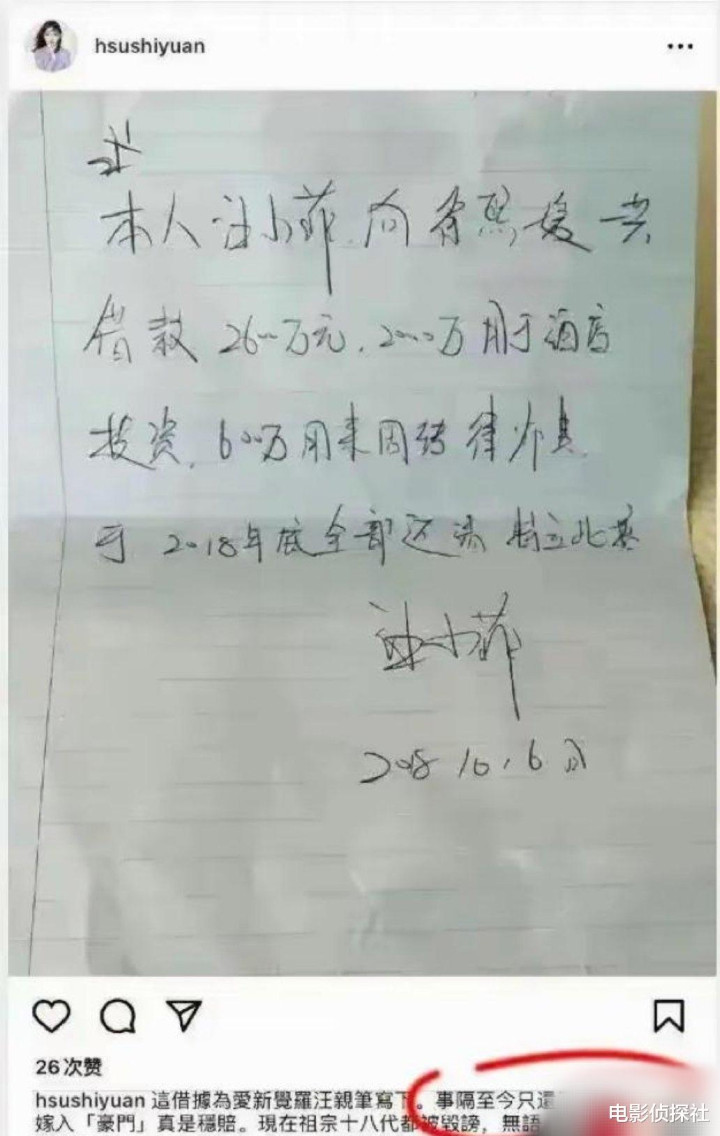 hsushiyuan
本人汪小菲向徐熙媛共
借款2600万元,2000万用于酒店
投资,600万用来周转律师费
于2018年底全部还清 特立此案
汪小菲
2018 10.6日
26次赞
hsushiyuan 這借據為愛新覺羅汪親筆寫下。事隔至今只還
嫁入「豪門」真是穩賠。現在祖宗十八代都被毀謗,無語
电影侦探社